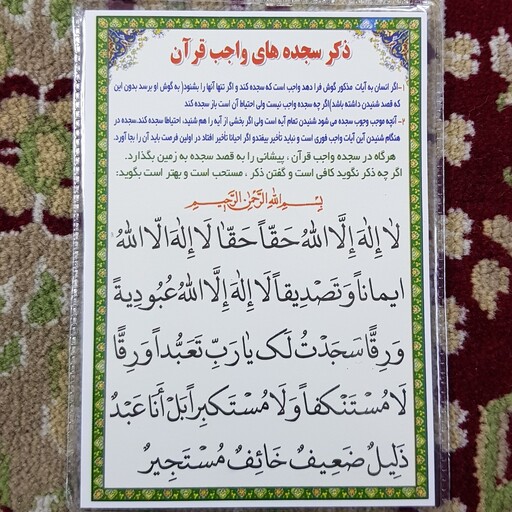 ذکر سجده های واجب قرآن
۱-اگر انسان به آیات مذکور گوش فرا دهد واجب است که سجده کند و اگر تنها آنها را بشنود( به گوش او برسد بدون این
که قصد شنیدن داشته باشد)اگر چه سجده واجب نیست ولی احتیاط آن است باز سجده کند
۲- آنچه موجب وجوب سجده می شود شنیدن تمام آیه است ولی اگر بخشی از آیه را هم شنید، احتیاطا سجده کند.سجده در
هنگام شنیدن آین آیات واجب فوری است و نباید تأخیر بیفتدو اگر احیانا تأخیر افتاد در اولین فرصت باید آن را بجا آورد.
هرگاه در سجده واجب قرآن ، پیشانی را به قصد سجده به زمین بگذارد.
اگر چه ذکر نگوید کافی است و گفتن ذکر ، مستحب است و بهتر است بگوید:
بِسْمِ اللهِ الرَّحْمنِ الرَّحیمِ
لا اِلهَ اِلَّا اللهُ حَقّاً حَقّا لَا اِلهَ الّا اللهُ
ایماناً وَ تَصْدِیقاً لَا اِلهَ اِلَّا اللهُ عُبُودِیةً
وَ رِقًّا سَجَدْتُ لَکَ یا رَبِّ تَعَبُّداً وَ رِقًّا
لَا مُسْتَنْکفاً وَ لَا مُسْتَکبِراً بَلْ أَنَا عَبْدٌ
ذَلِیلٌ ضَعِیفٌ خَائِفٌ مُسْتَجِیرٌ